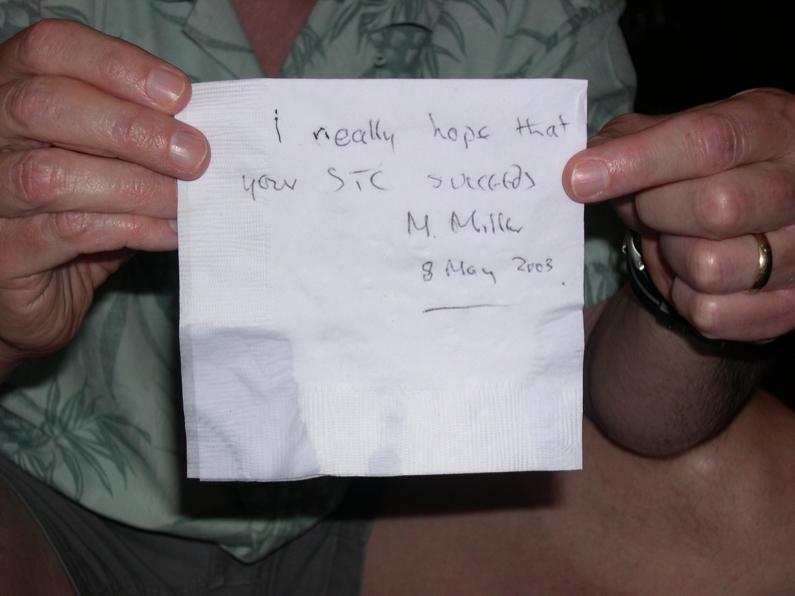 i really hope that
your STC succeeds
M. Miller
8 May 2003.